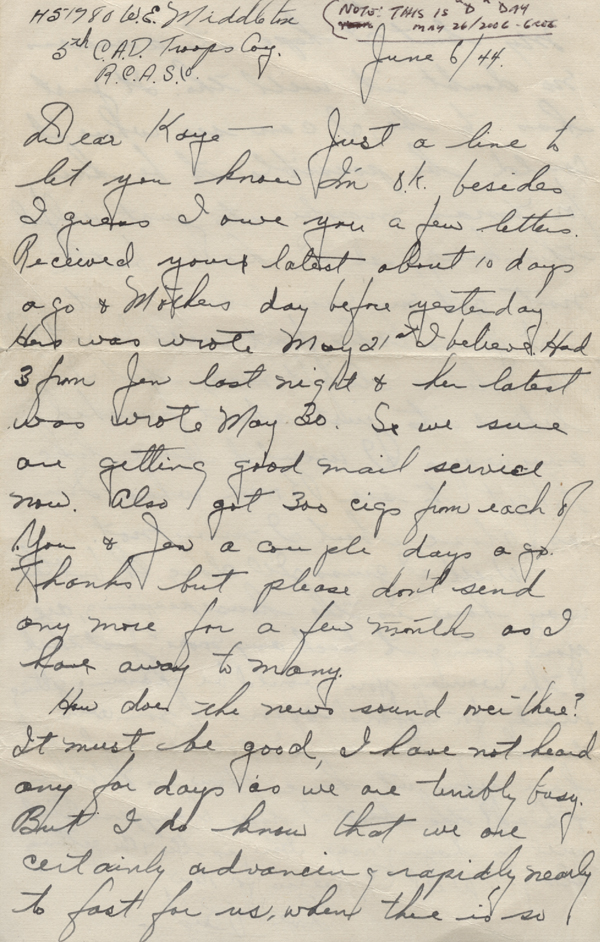 H51980 W.E. Middleton
5th C.A.D. Troops Coy.
R.C.A.S.C.
(NOTE: THIS IS "D" DAY
MAY 26/2006 - GREG
June 6/44.
Dear Kaye — Just a line to
let you know I'm O.K. besides
I guess I owe you a few letters.
Received yours latest about 10 days
ago & Mothers day before yesterday
Hers was wrote May 21st I believe. Had
3 from Jen last night & her latest
was wrote May 30. So we sure
are getting good mail service
now. Also got 300 cigs from each of
You & Jen a couple days ago.
Thanks but please don't send
any more for a few months as I
have away to many.
How does the news sound over there?
It must be good, I have not heard
any for days as we are terribly busy.
But I do know that we are
certainly advancing rapidly nearly
to fast for us, when there is so